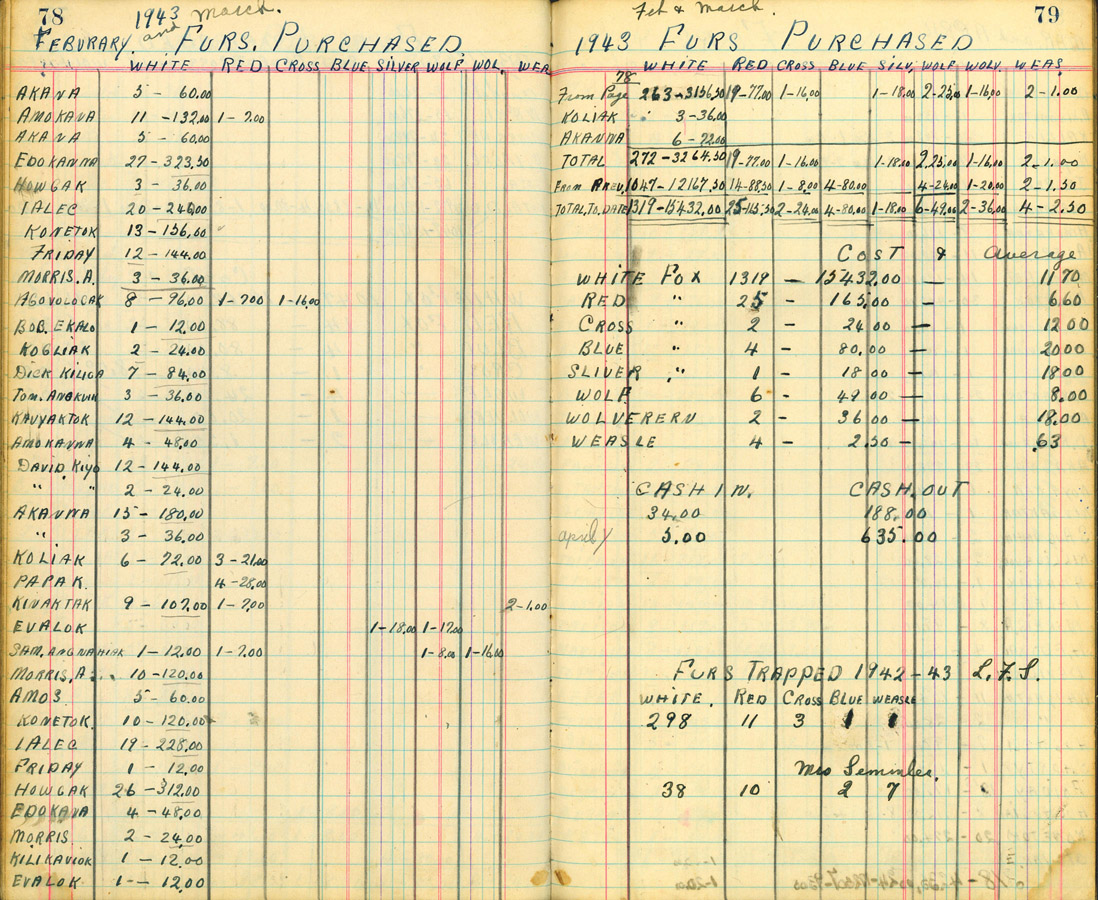 78
1943 and March.
FEBURARY. FURS. PURCHASED.
WHITE RED CROSS BLUE SILVER WOLF. WOL. WEA
AKANA 5 – 60.00
AMOKANA 11 – 132.00 1 – 7.00
AKANA 5 – 60.00
EDOKANNA 27 – 323.50
HOWGAK 3 – 36.00
IALEC 20 – 240.00
KONETOK 13 – 156.00
FRIDAY 12 – 144.00
MORRIS. A. 3 – 36.00
AGOVOLOCAK 8 – 96.00 1 – 7.00 1 – 16.00
BOB. EKALO 1 – 12.00
KOGLIAK 2 – 24.00
DICK KILIOA 7 – 84.00
TOM. 3 – 36.00
KAVYAKTOK 12 – 144.00
AMOKANNA 4 – 48.00
DAVID. KIYO 12 – 144.00
" " 2 – 24.00
AKANNA 15 – 180.00
" 3 – 36.00
KOLIAK 6 – 72.00 3 – 21.00
PAPAK. 4 – 28.00
KINAKTAK 9 – 107.00 1 – 7.00 2 – 1.00
EVALOK 1 – 18.00 1 – 17.00
SAM. ANGNAHIAK 1 – 12.00 1 – 7.00 1 – 8.00 1 – 16.00
MORRIS. A. 10 – 120.00
AMOS 5 – 60.00
KONETOK. 10 – 120.00
IALEC 19 – 228.00
FRIDAY 1 – 12.00
HOWGAK 26 – 312.00
EDOKANA 4 – 48.00
MORRIS. 2 – 24.00
KILIKAVIOK 1 – 12.00
EVALOK 1 – 12.00
Feb & March. 79
1943 FURS PURCHASED
WHITE RED CROSS BLUE SILV. WOLF. WOLV. WEAS.
From Page 78 263 – 3156.50 19 – 77.00 1 – 16.00 1 – 18.00 2 – 25.00 1 – 16.00 2 – 1.00
KOLIAK 3 – 36.00
AKANNA 6 – 72.00
TOTAL 272 – 3264.50 19 – 77.00 1 – 16.00 1 – 18.00 2 25.00 1 – 16.00 2 – 1.00
FROM PREV. 1047 – 12167.50 14 – 88.50 1 – 8.00 4 – 80.00 4 – 24.00 1 – 20.00 2 – 1.50
TOTAL. TO. DATE 1319 – 15432.00 25 – 165.50 2 – 24.00 4 – 80.00 1 – 18.00 6 – 49.00 2 – 36.00 4 – 2.50
COST & Average
WHITE FOX 1319 – 15432.00 – 11 70
RED " 25 – 165.00 – 6 60
CROSS " 2 – 24 00 – 12 00
BLUE " 4 – 80.00 – 20 00
SLIVER " 1 – 18 00 – 18 00
WOLF. 6 – 49 00 – 8.00
WOLVERERN 2 – 36 00 – 18.00
WEASLE 4 – 2.50 – .63
CASH IN. CASH. OUT
34.00 188.00
april 5.00 635.00
FURS TRAPPED 1942–43 L.F.S.
WHITE. RED CROSS BLUE WEASLE
298 11 3 1 1
Mrs Semmler.
38 10 2 7